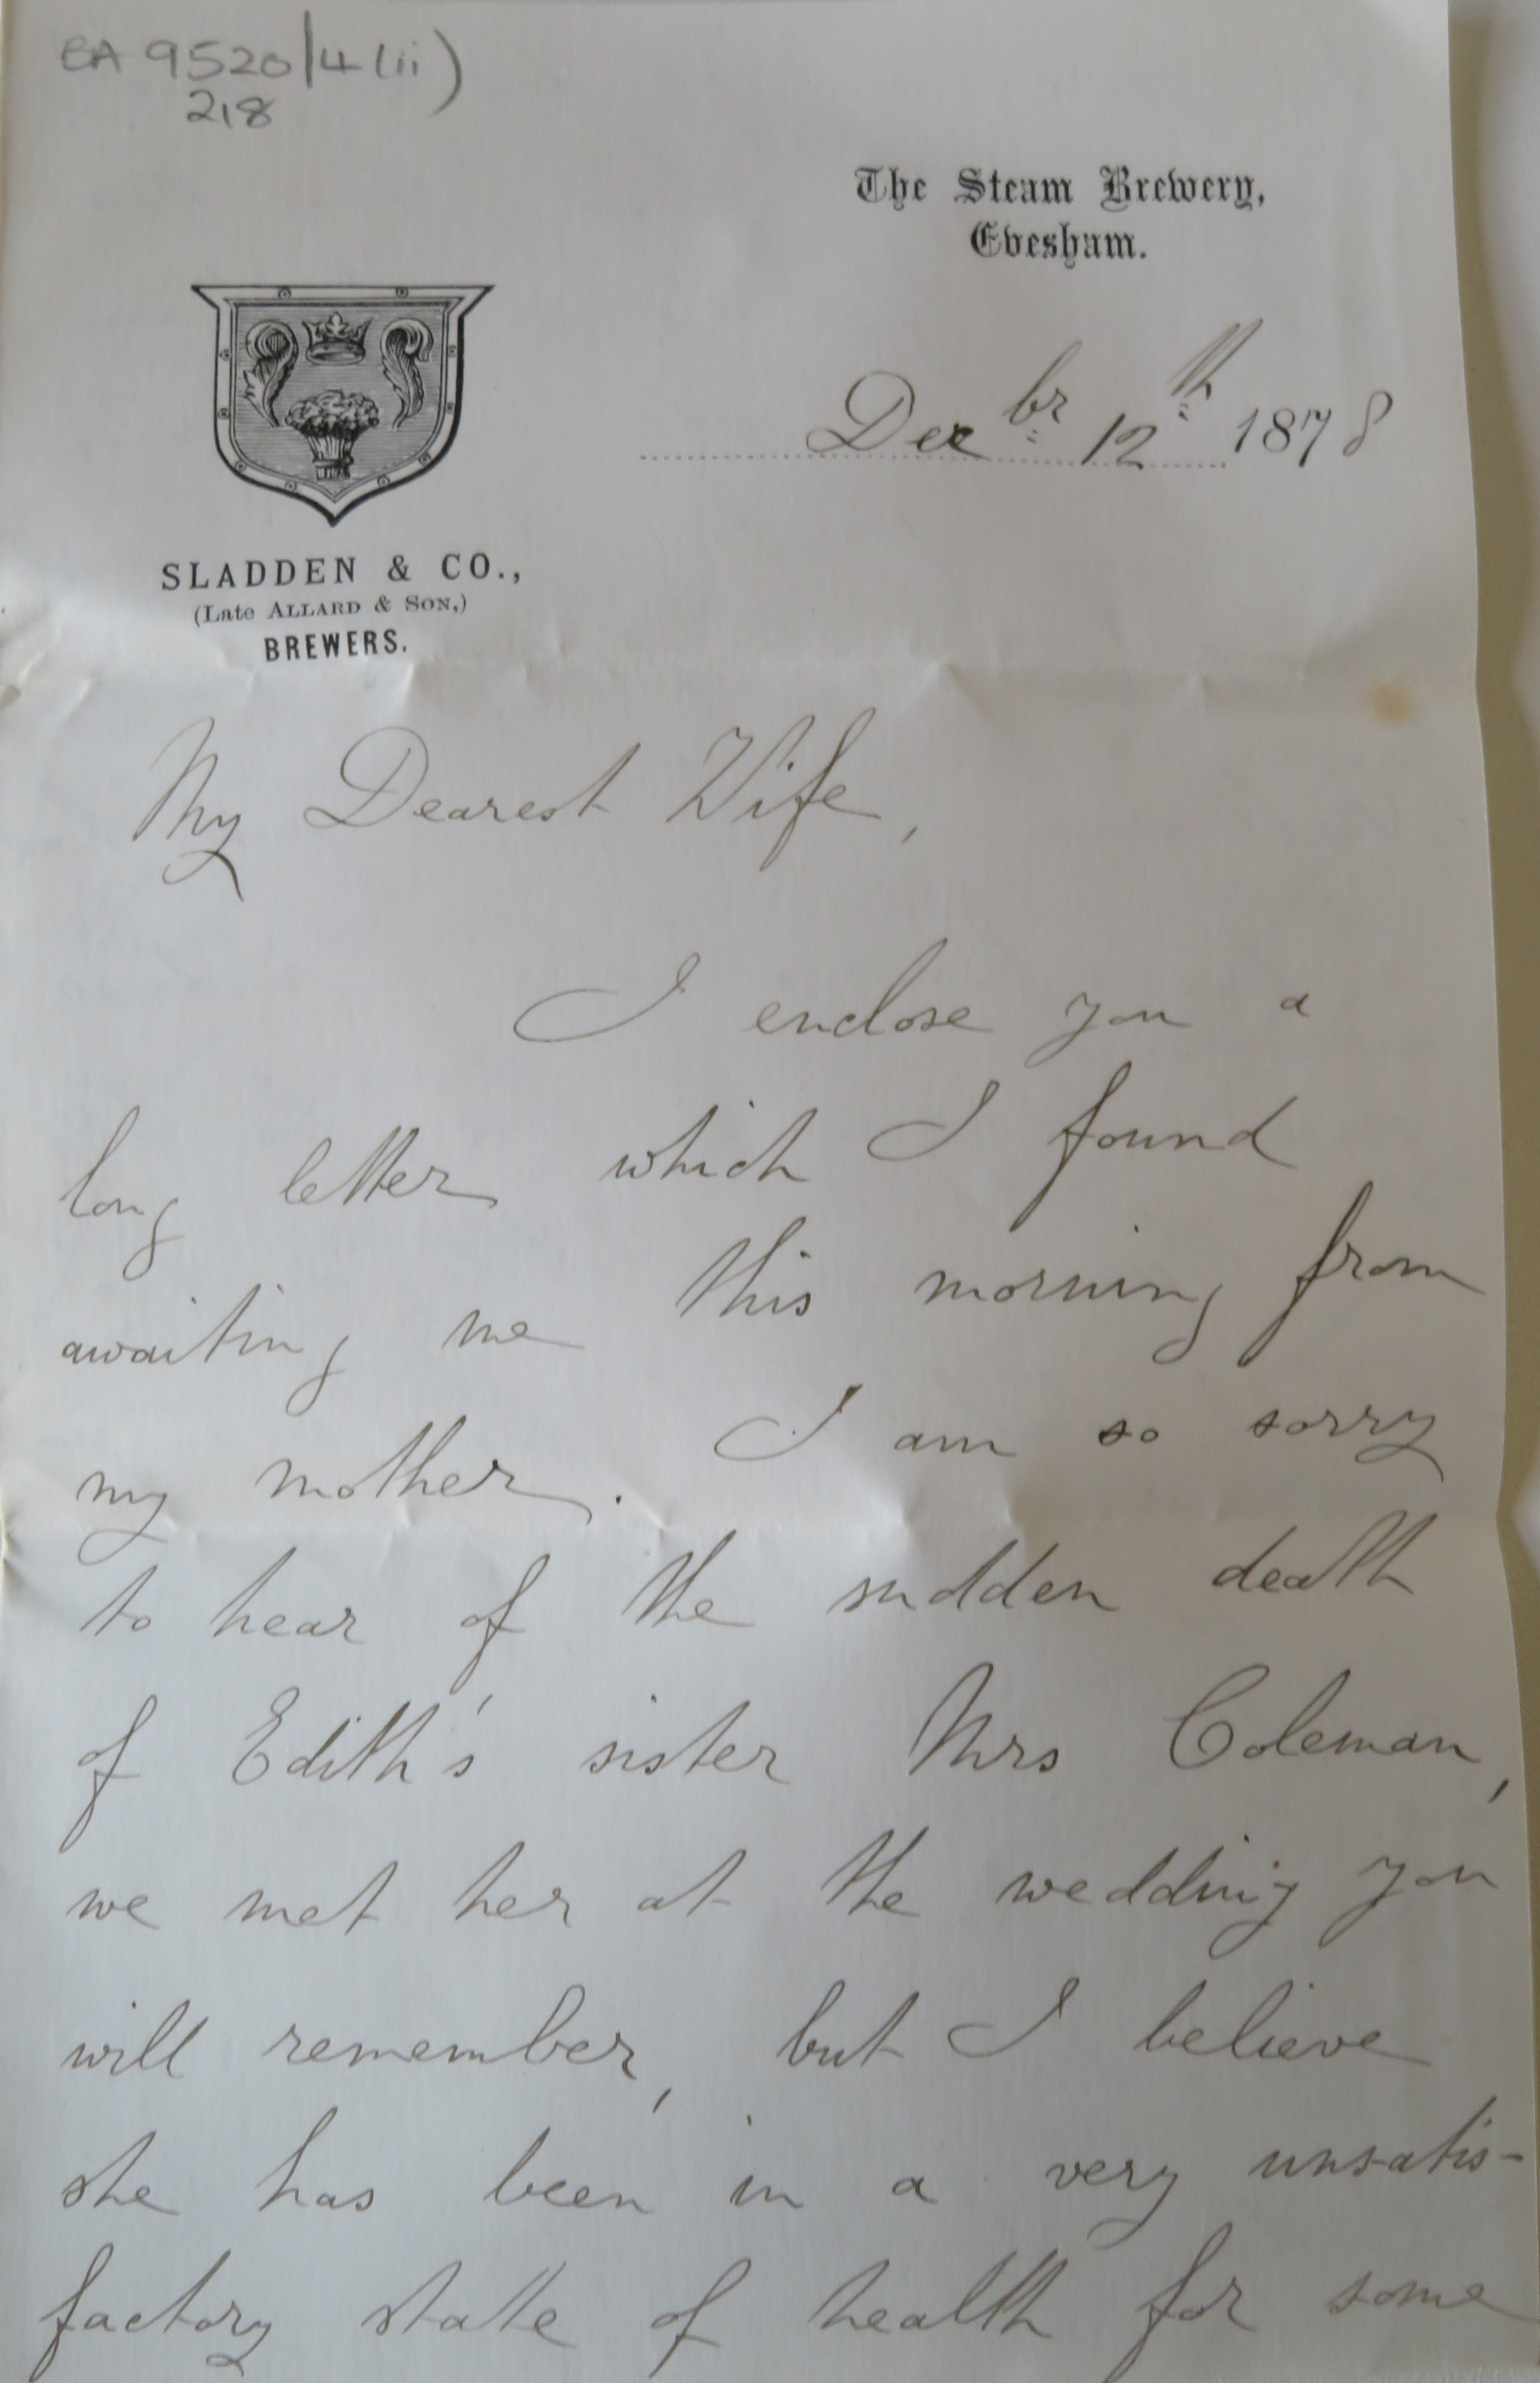 BA 9520/4(ii)
218
The Steam Brewery,
Evesham.
Decbr 12th 1878
SLADDEN & CO.,
(Late ALLARD & SON,)
BREWERS.
My Dearest Wife,
I enclose you a
long letter which I found
awaiting me this morning from
my mother. I am so sorry
to hear of the sudden death
of Edith's sister Mrs Coleman,
we met her at the wedding you
will remember, but I believe
she has been in a very unsatis-
factory state of health for some